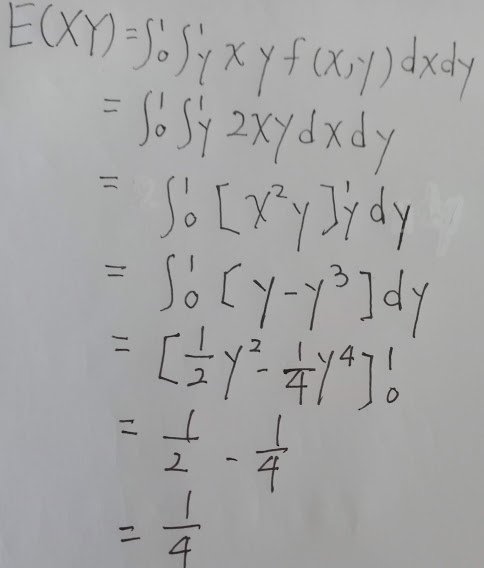 E(XY) = ∫₀¹ ∫y¹ x y f(x,y) dxdy
= ∫₀¹ ∫y¹ 2xy dx dy
= ∫₀¹ [x²y]y¹ dy
= ∫₀¹ [y - y³] dy
= [1/2 y² - 1/4 y⁴]₀¹
= 1/2 - 1/4
= 1/4